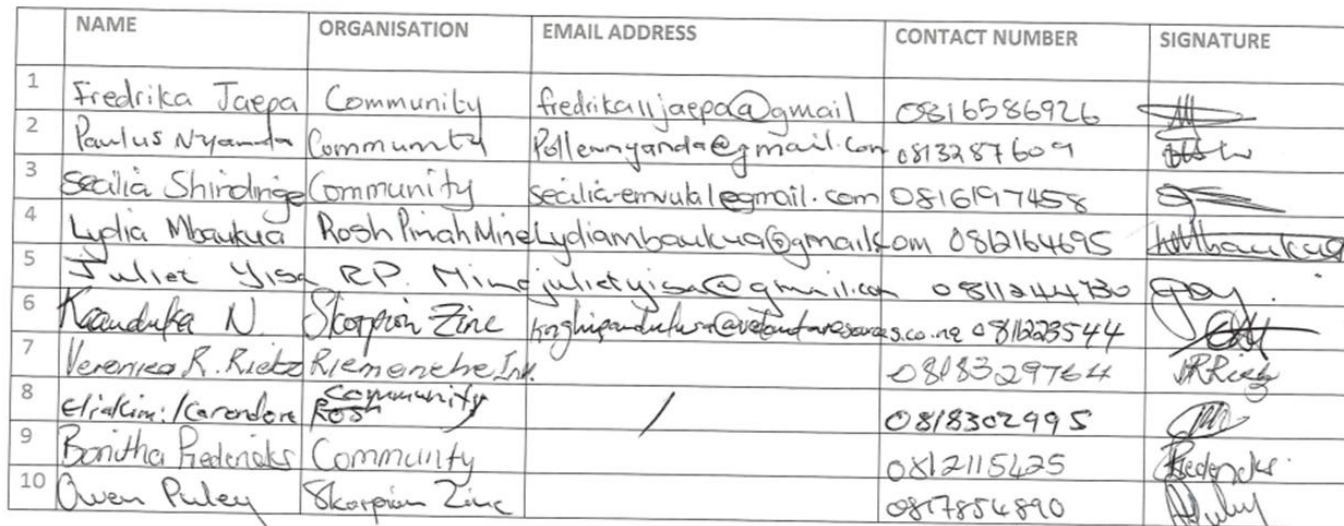 NAME ORGANISATION EMAIL ADDRESS CONTACT NUMBER SIGNATURE
1 Fredrika Jaepa Community fredrika11jaepa@gmail 0816586926
2 Paulus Nyanda Community Pollennyanda@gmail.com 0813287609
3 Secilia Shindinge Community secilia-emvula1@gmail.com 0816197458
4 Lydia Mbaukua Rosh Pinah Mine Lydiambaukua@gmail.com 0812164695 Mbaukua
5 Juliet Yisa R.P. Mine julietyisa@gmail.com 0811244730
6 N. Skorpion Zinc 0811223544
7 Veronica R. Rietz Ink. 0818329764 VRRietz
8 Eliakim Karondore Rosh community / 0818302995
9 Bonitha Fredericks Community 0812115425 Fredericks
10 Owen Puley Skorpion Zinc 0817854890 Puley